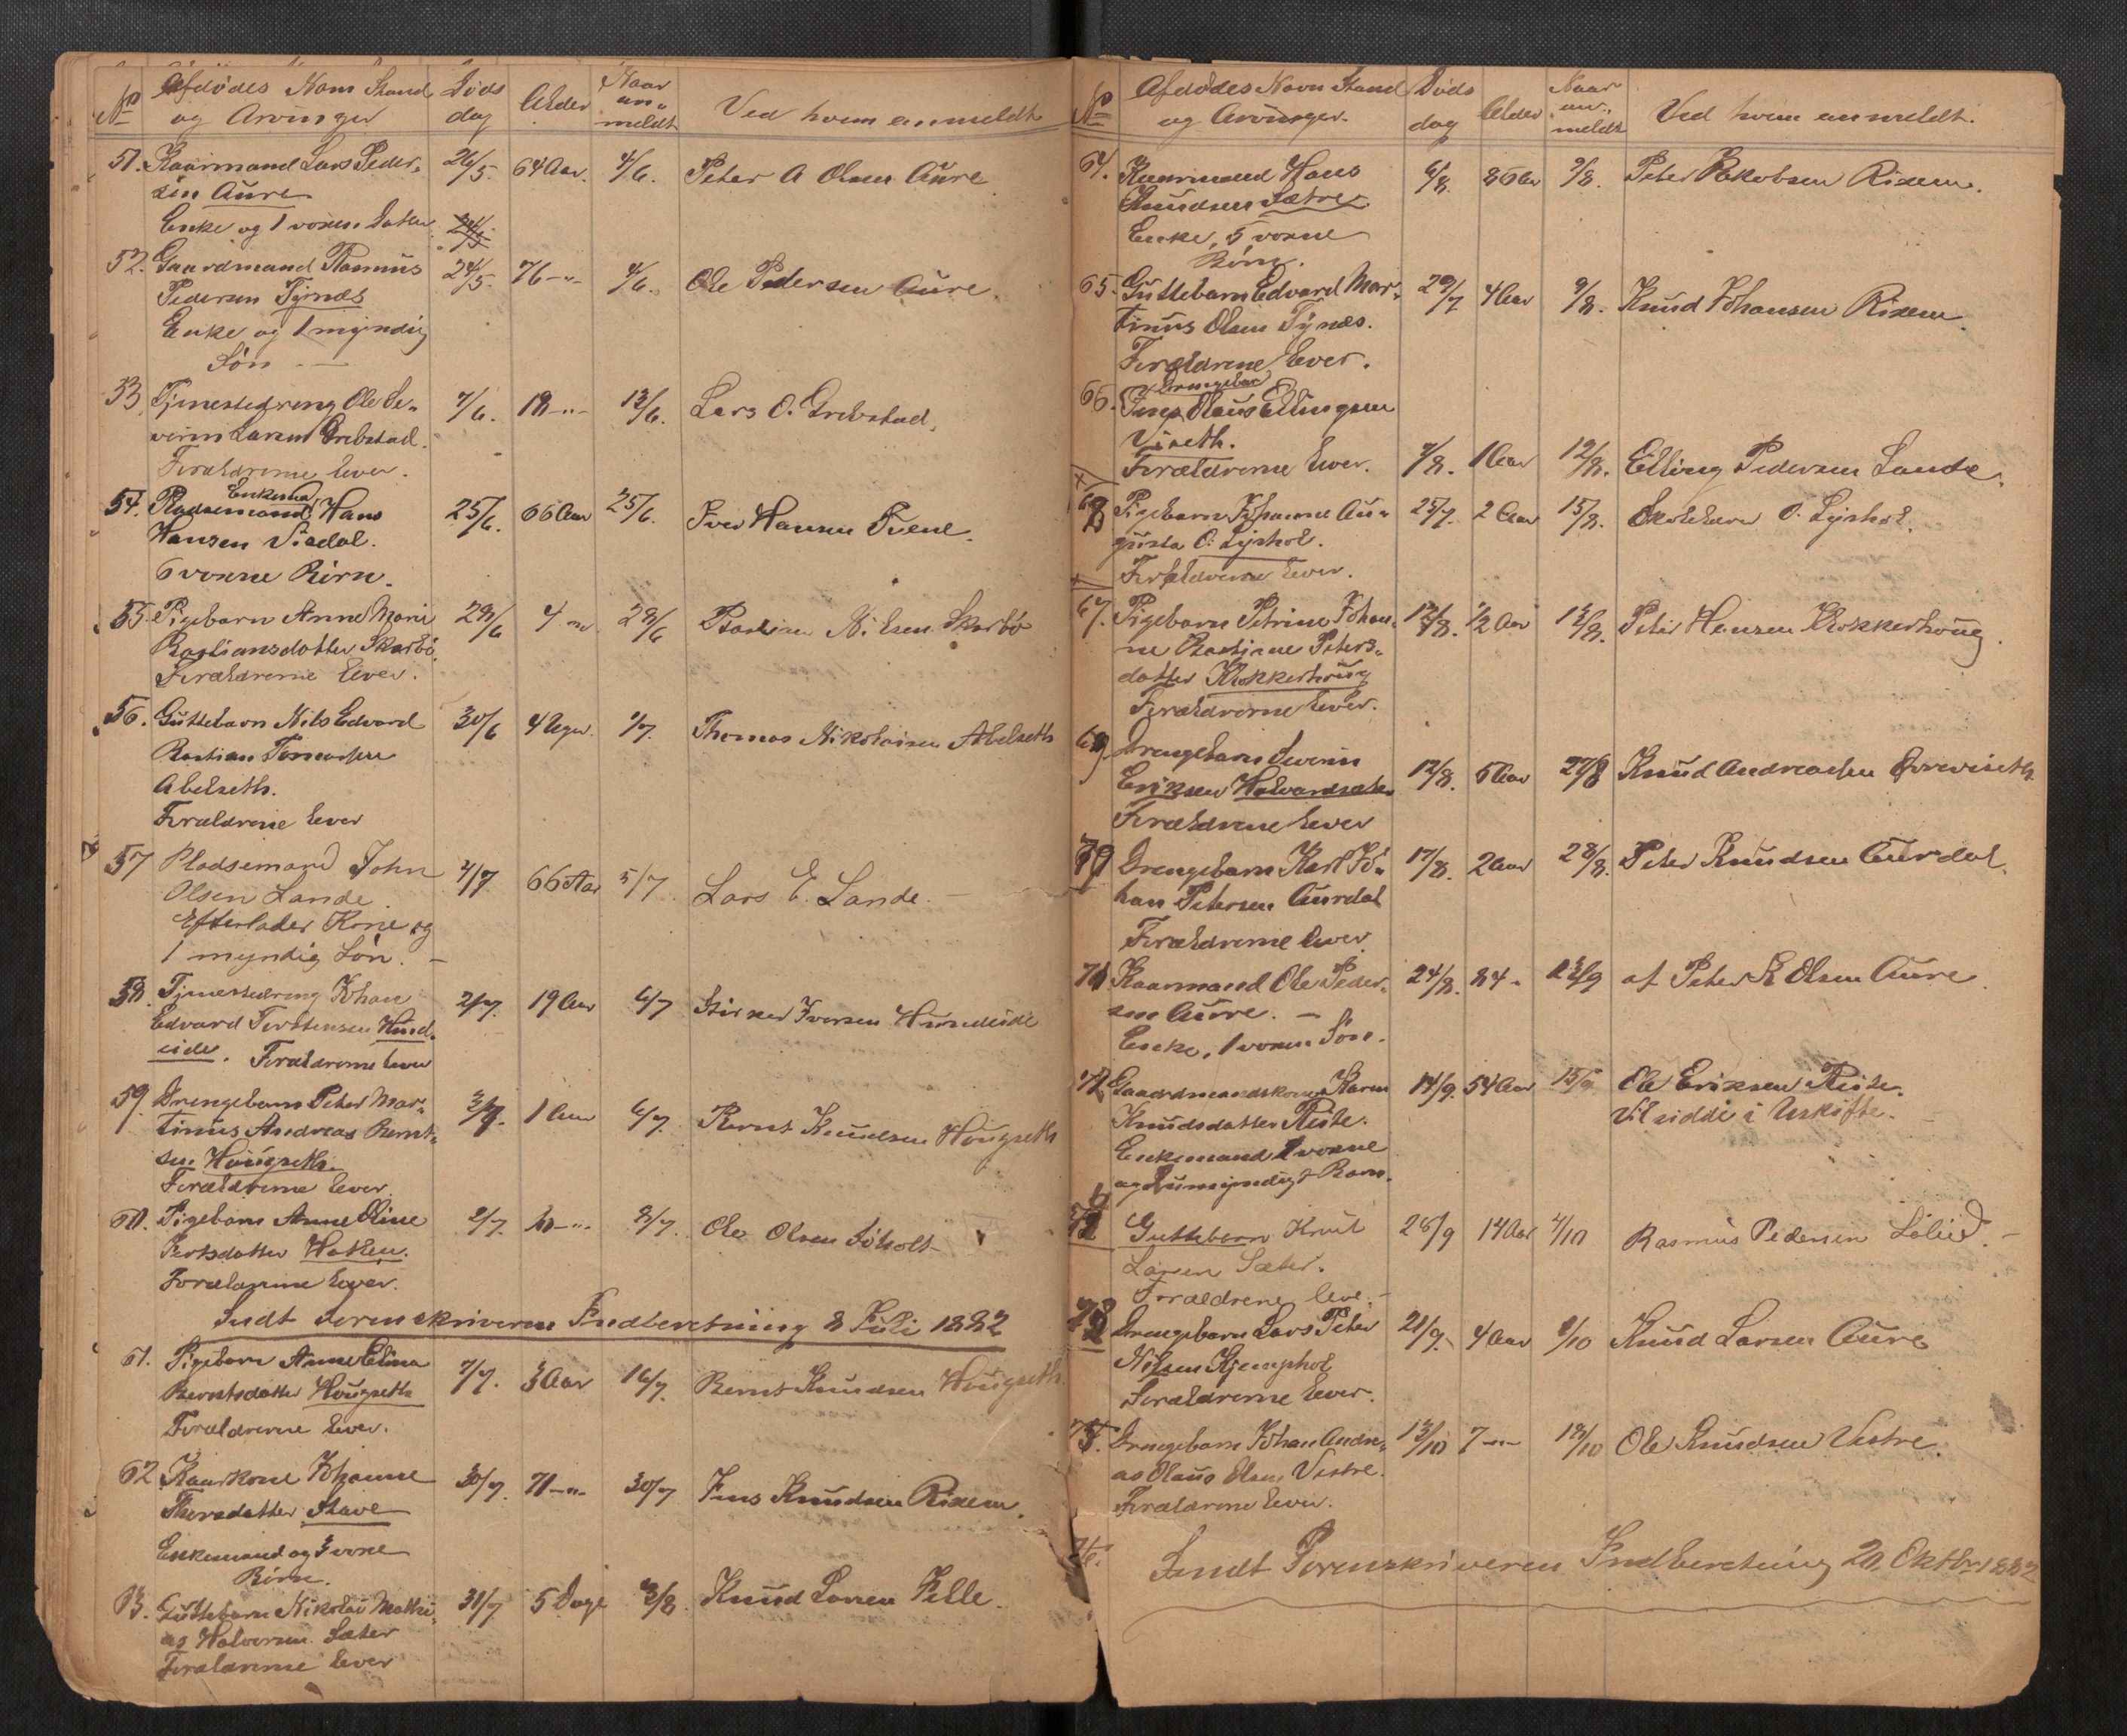 No Afdødes Navn Stand og Arvinger Døds dag Alder Naar anmeldt Ved hvem anmeldt
51. Kaarmand Lars Peder- 26/5. 64 Aar. 4/6. Peter A Olsen Aure
sen Aure
Enke og 1 voxen Datter 24/5
52. Gaardmand Rasmus 24/5. 76 -"- 4/6. Ole Pedersen Aure.
Pedersen Tynæs
Enke og 1 myndig
Søn
53 Tjenestedreng Ole Se- 7/6. 18 -"- 13/6. Lars O. Grebstad.
verin Larsen Grebstad.
Forældrene lever.
Enkemd
54. Pladsemand Hans 25/6. 66 Aar 25/6. Iver Hansen
Hansen Viadal.
6 voxne Børn.
55. Pigebarn Anne Marie 28/6 4 -"- 28/6 Bastian Nilsen Skarbø
Bastiansdatter Skarbø.
Forældrene lever.
56. Guttebarn Nils Edvard 30/6 4 Uger. 1/7. Thomas Nikolaisen Abelseth
Bastian Tomassen
Abelseth.
Forældrene lever
57 Pladsemand John 4/7 66 Aar 5/7. Lars E. Lande.
Olsen Lande.
Efterlader Kone og
1 myndig Søn.
58. Tjenestedreng Johan 2/7. 19 Aar 6/7 Iversen Hundeide
Edvard Torstensen Hund-
eide. Forældrene lever
59. Drengebarn Peter Mar- 3/7. 1 Aar 6/7. Bernt Knudsen Hougseth
tinus Andreas Bernt-
sen Hougseth.
Forældrene lever
60. Pigebarn Anne Oline 2/7. 10 -"- 8/7. Ole Olsen Søholt
Hatlen.
Forældrene lever.
Sendt Sorenskriveren Indberetning 8 Juli 1882
61. Pigebarn Anne Elina 7/7. 3 Aar 16/7. Bernt Knudsen Hougseth
Berntsdatter Hougseth
Forældrene lever.
62 Kaarkone Johanne 30/7. 71 -"- 30/7 Jens Knudsen Rixem.
Stave
Enkemand og 3 voxne
Børn.
63. Guttebarn Nikolai Mathi- 31/7 5 Dage 3/8. Knud Larsen Velle.
as Halvorsen Sæter
Forældrene lever
No Afdødes Navn Stand og Arvinger. Døds dag Alder Naar anmeldt Ved hvem anmeldt.
64. Kaarmand Hans 6/8. 86 Aar 9/8. Peter Jakobsen Rixem.
Knudsen Sætre.
Enke, 5 voxne
Børn.
65. Guttebarn Edvard Mar- 29/7 4 Aar 9/8. Knud Johansen Rixem.
tinus Olsen Tynæs.
Forældrene lever.
Drengebarn
66. Jens Olaus Ellingsen
Viseth.
Forældrene lever. 7/8. 1 Aar 12/8. Elling Pedersen Lande.
68 Pigebarn Johanne Au- 25/7. 2 Aar 15/8. Skolelærer O. Lyshol.
gusta O. Lyshol.
Forældrene lever.
67. Pigebarn Petrine Johan- 12/8. 1/2 Aar 13/8. Peter Hansen Klokkerhoug.
ne Bastiane Peters-
datter Klokkerhoug
Forældrene lever.
69. Drengebarn Severin
Eriksen Halvardsæter 12/8. 6 Aar 27/8 Knud Andreassen Øvreviseth
Forældrene lever
70 Drengebarn Karl Jo- 17/8. 2 Aar 28/8. Peter Knudsen Aurdal.
han Petersen Aurdal
Forældrene lever
71. Kaarmand Ole Peder- 24/8. 84 -"- 13/9 af Peter A Olsen Aure
sen Aure.
Enke, 1 voxen Søn.
72. Gaardmandskone Karen 14/9. 54 Aar 15/9 Ole Eriksen Riste.
Knudsdatter Riste. Vil sidde i Uskifte.
Enkemand voxne
og umyndige Børn.
73 Guttebarn Knut 28/9 14 Aar 4/10 Rasmus Pedersen
Larsen Sæter.
Forældrene leve.
74 Drengebarn Lars Peter 21/9. 4 Aar 8/10 Knud Larsen Aure
Nilsen Kjemphol
Forældrene lever.
75. Drengebarn Johan Andre- 13/10 7 -"- 18/10 Ole Knudsen Vestre.
as Olaus Olsen Vestre.
Forældrene lever.
76. Sendt Sorenskriveren Indberetning 20 Oktbr 1882